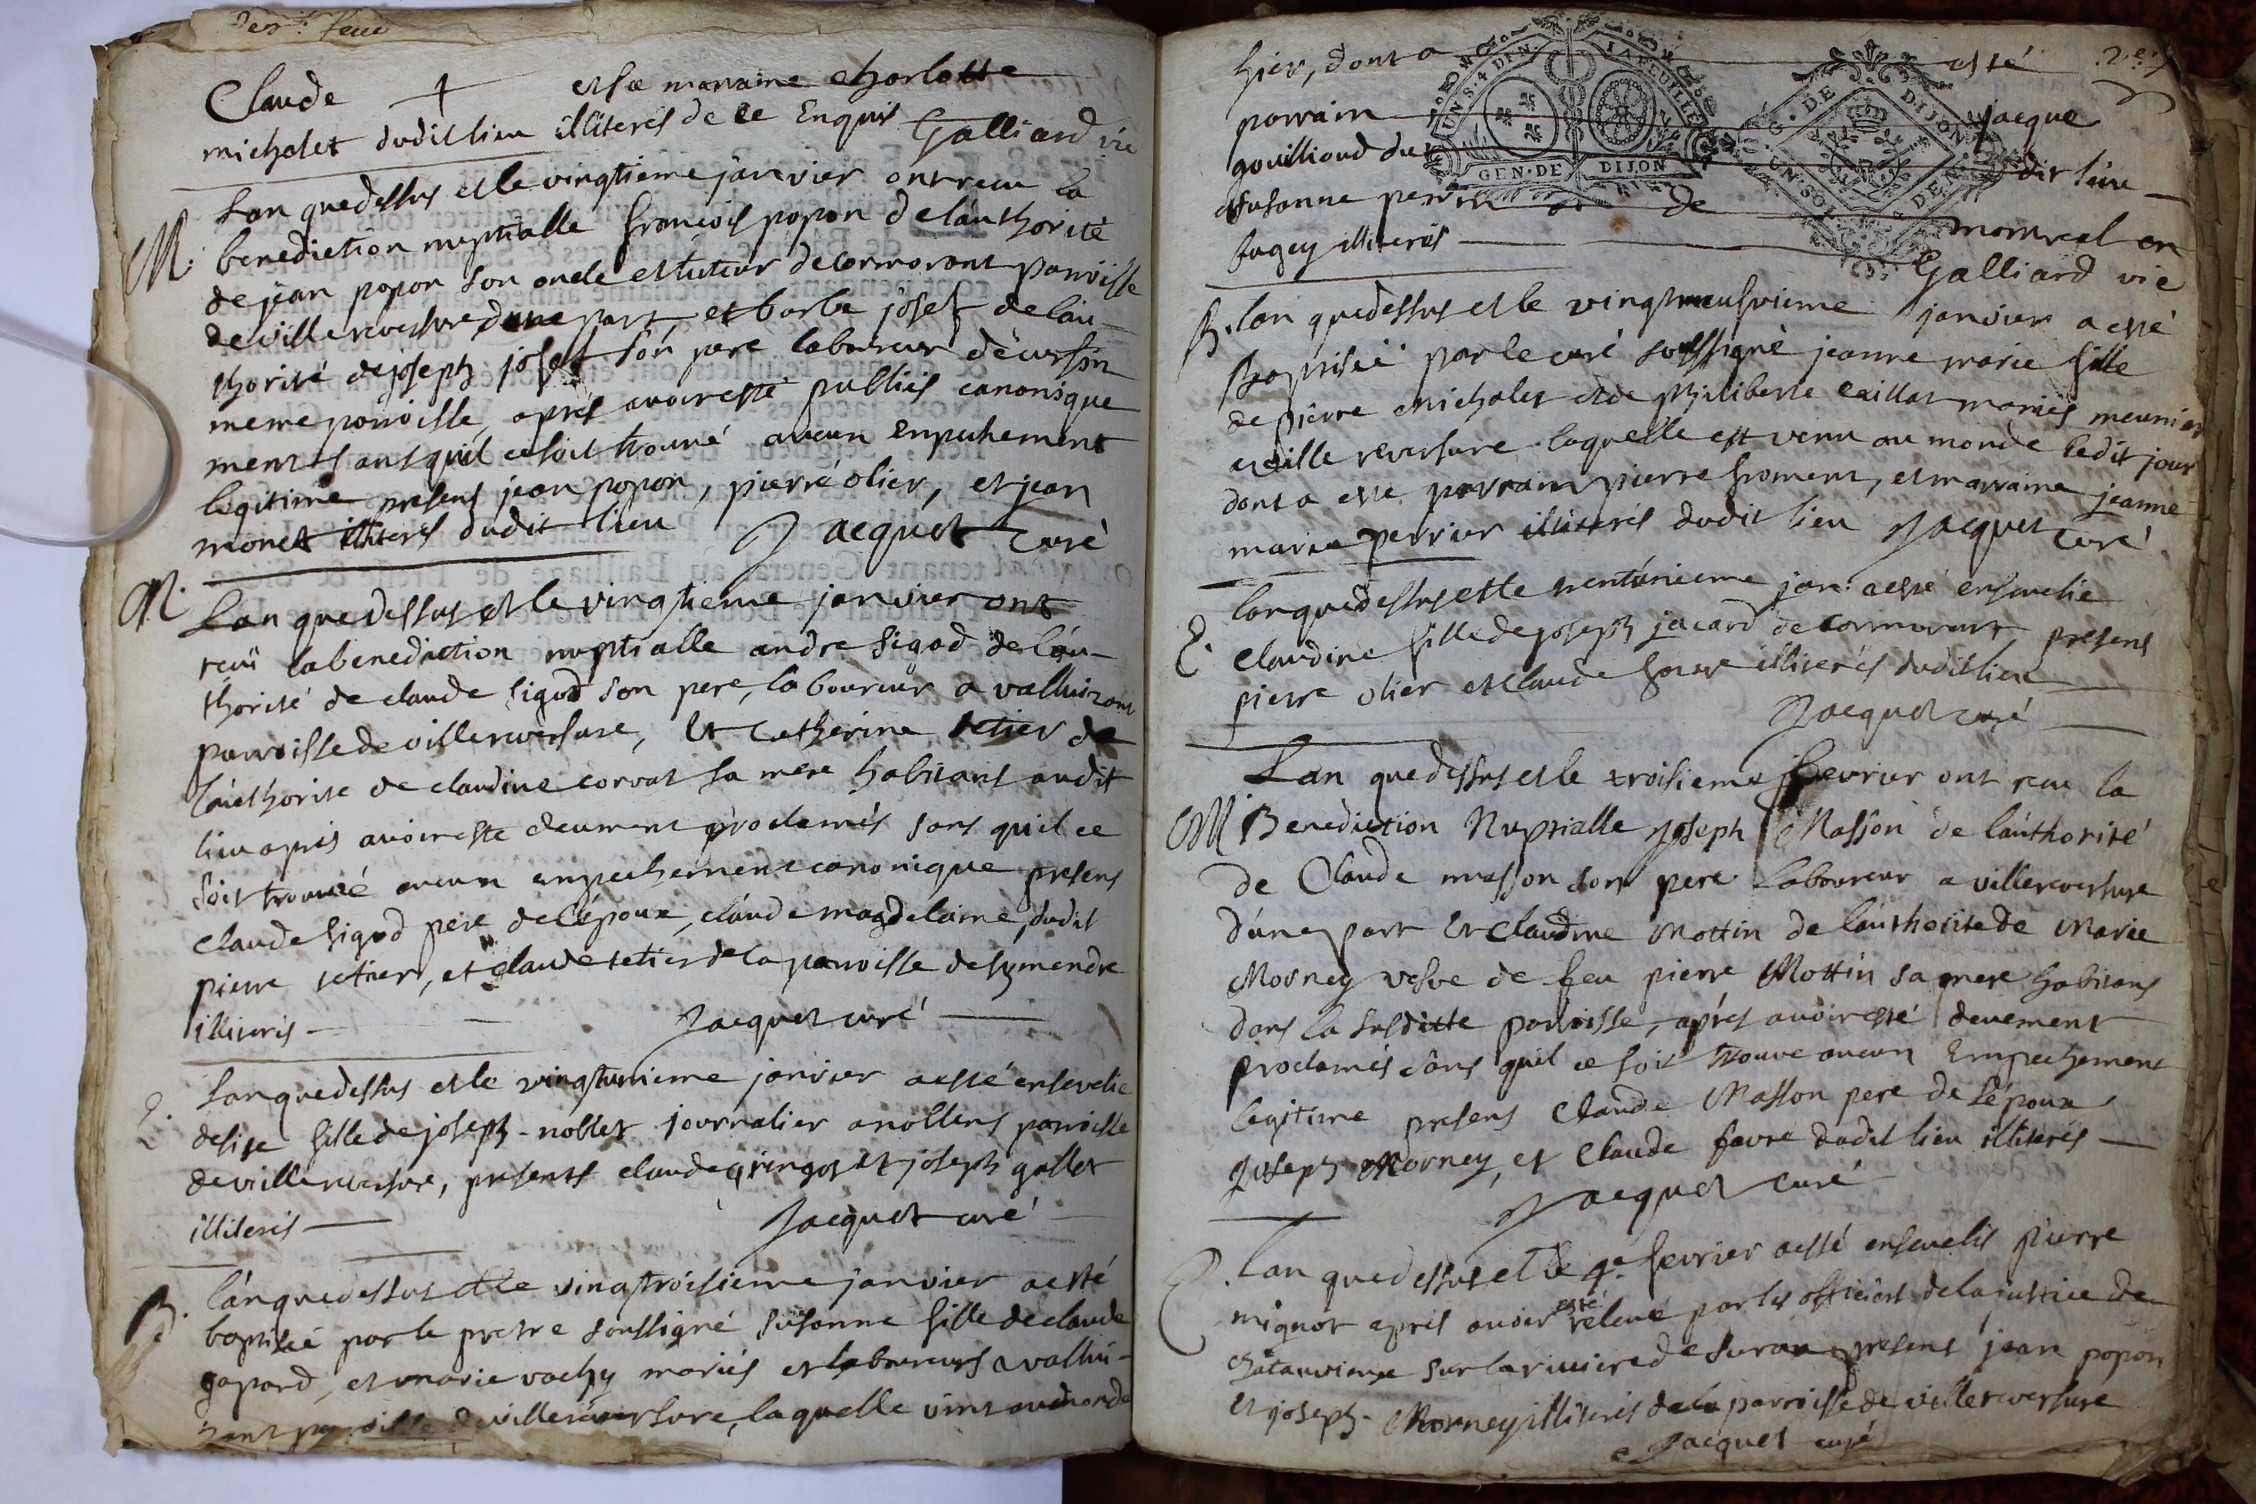 Claude et sa marraine charlotte
michalet dudit lieu illiterés de ce Enquis Galliard vic
Lan quedessus et le vingtieme janvier ont receu la
M. benediction nuptialle francois popon de lauthorité
de jean popon son oncle et tuteur de cormorant parroisse
de villereversure dune part, et barbe joset de lau-
thorité de joseph joset son pere laboureur decursin
meme parroisse, aprés avoir esté publiés canonique
ment sans quil ce soit trouvé aucun Enpechement
legitime presens jean popon, pierre olier, et jean
monet illiterés dudit lieu Jacquet curé
M. Lan quedessus et le vingtieme janvier ont
receü la benediction nuptialle andre sigod de lau-
thorité de claude sigod son pere, laboureur a valluizant
parroisse de villereversure, Et Catherine tetier de
lauthorite de claudine corvat sa mere habitans audit
lieu apris avoir esté deument proclamés sans quil ce
soit trouvé aucun enpechement canonique presens
claude sigod pere de l'époux, claude magdelaine, dudit
pierre tetier, et claude tetier de la parroisse de symandre
illiteris Jacquet curé
E. Lan quedessus et le vingtunieme janvier a esté ensevelie
denise fille de joseph noblet journalier a noblens parroisse
de villereversure, presents claude gringot et joseph gallet
illiteris Jacquet curé
B. lan quedessus et le vingtroisieme janvier a esté
baptisée par le prestre soussigné susanne fille de claude
gapard, et marie vachy mariés et laboureurs a vallui-
zant parroisse de villereversure, laquelle vint au monde
2.e
hier, dont a esté
UN S. 4 DEN. LA FEUILLE
GEN. DE DIJON
G. DE DIJON
UN SOL 4 DE.
parrain jacque
gouillioud du dit lieu
et susanne perrin de montreal en
bugey illiterés Galliard vic
B. lan quedessus et le vingtneufvieme janvier a esté
Baptisée par le curé soussigné jeanne marie fille
de pierre michalet et de philiberte caillat mariés meunier
a villereversure laquelle est venu au monde ledit jour
dont a esté parrain pierre froment, et marraine jeanne
marie perrier illiterés dudit lieu Jacquet curé
E. lan quedessus et le trentanieme jan: a esté ensevelie
claudine fille de joseph jacard de cormorant, presens
pierre olier et claude favre illiterés dudit lieu
Jacquet curé
Lan quedessus et le troisieme fevrier ont receu la
M Benediction Nuptialle Joseph Masson de lauthorité
de Claude masson son pere laboureur a villereversure
d'une part Et claudine Mottin de lauthorite de Marie
Morney vesve de feu pierre Mottin sa mere habitans
dans la susditte parroisse, aprés avoir esté deuement
proclamés sans quil ce soit trouve aucun Empechement
legitime presens Claude Masson pere de l'époux
Joseph Morney, et Claude favre dudit lieu illiterés
Jacquet curé
E. lan quedessus et le 4e. fevrier a esté ensevelis pierre
mignot apris avoir esté relevé par les officiers de la justice de
châtauvieux sur la riviere de suran presens jean popon
et joseph Morney illiterés de la parroisse de villereversure
Jacquet curé